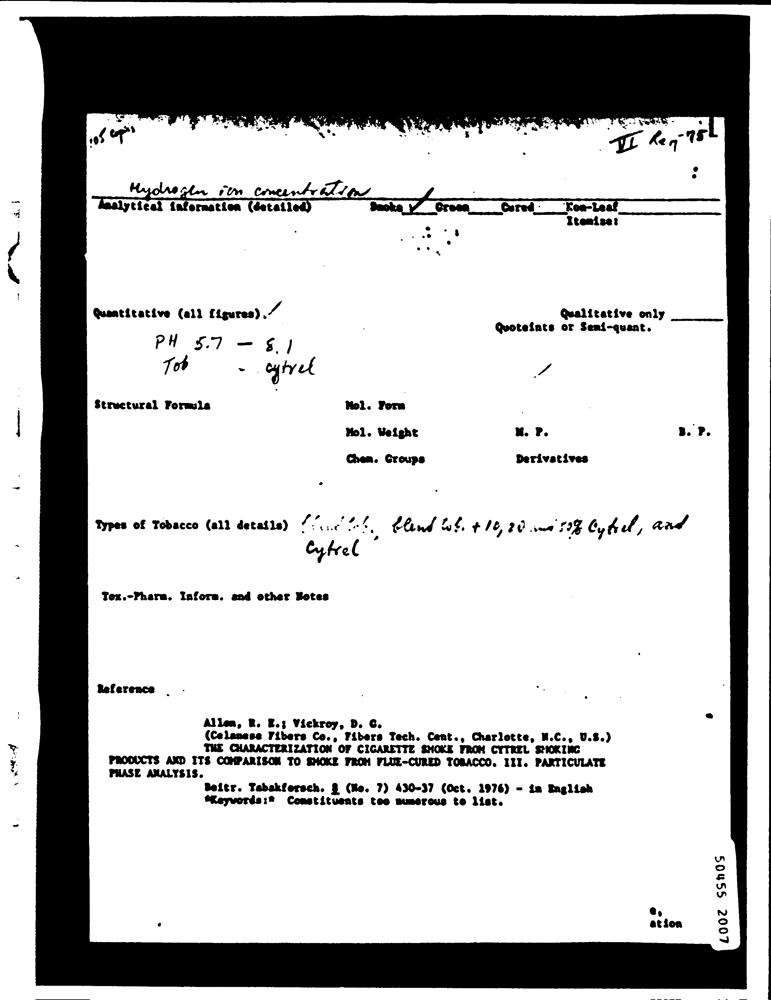 VI Reg-75
Hydrogen ion concentration
Analytical information (detailed) Smoke ✓ Green Cured Non-Leaf
Itemize:
Quantitative (all figures). ✓ Qualitative only
Quoteints or Semi-quant.
PH 5.7 - 8.1
Tob - cytrel
Structural Formula Mol. Form
Mol. Weight M. P. B. P.
Chem. Groups Derivatives
Types of Tobacco (all details) blend tob. + 10, 20 and 50% Cytrel, and
Cytrel
Tox.-Pharm. Inform. and other Notes
Reference
Allen, R. E.; Vickroy, D. G.
(Celanese Fibers Co., Fibers Tech. Cent., Charlotte, N.C., U.S.)
THE CHARACTERIZATION OF CIGARETTE SMOKE FROM CYTREL SMOKING
PRODUCTS AND ITS COMPARISON TO SMOKE FROM FLUE-CURED TOBACCO. III. PARTICULATE
PHASE ANALYSIS.
Beitr. Tabakforsch. 8 (No. 7) 430-37 (Oct. 1976) - in English
*Keywords:* Constituents too numerous to list.
e,
ation
50455 2007